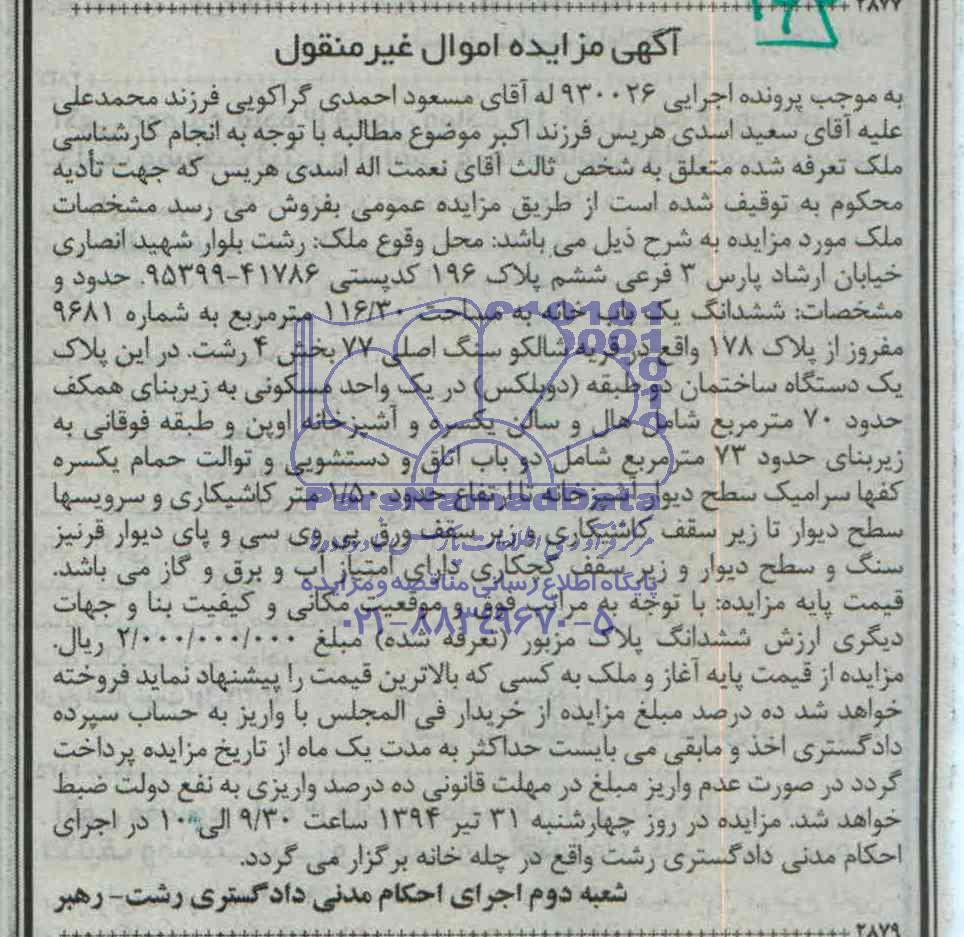 ۲۸۷۷
آگهی مزایده اموال غیرمنقول
به موجب پرونده اجرایی ۹۳۰۰۲۶ له آقای مسعود احمدی گراکویی فرزند محمدعلی
علیه آقای سعید اسدی هریس فرزند اکبر موضوع مطالبه با توجه به انجام کارشناسی
ملک تعرفه شده متعلق به شخص ثالث آقای نعمت اله اسدی هریس که جهت تأدیه
محکوم به توقیف شده است از طریق مزایده عمومی بفروش می رسد مشخصات
ملک مورد مزایده به شرح ذیل می باشد: محل وقوع ملک: رشت بلوار شهید انصاری
خیابان ارشاد پارس ۳ فرعی ششم پلاک ۱۹۶ کدپستی ۴۱۷۸۶-۹۵۳۹۹. حدود و
مشخصات: ششدانگ یک باب خانه به مساحت ۱۱۶/۳۰ مترمربع به شماره ۹۶۸۱
مفروز از پلاک ۱۷۸ واقع در قریه شالکو سنگ اصلی ۷۷ بخش ۴ رشت. در این پلاک
یک دستگاه ساختمان دو طبقه (دوبلکس) در یک واحد مسکونی به زیربنای همکف
حدود ۷۰ مترمربع شامل هال و سالن یکسره و آشپزخانه اوپن و طبقه فوقانی به
زیربنای حدود ۷۳ مترمربع شامل دو باب اتاق و دستشویی و توالت حمام یکسره
کفها سرامیک سطح دیوار آشپزخانه تا ارتفاع حدود ۱/۵۰ متر کاشیکاری و سرویسها
سطح دیوار تا زیر سقف کاشیکاری و زیر سقف ورق پی وی سی و پای دیوار قرنیز
سنگ و سطح دیوار و زیر سقف گچکاری دارای امتیاز آب و برق و گاز می باشد.
قیمت پایه مزایده: با توجه به مراتب فوق و موقعیت مکانی و کیفیت بنا و جهات
دیگری ارزش ششدانگ پلاک مزبور (تعرفه شده) مبلغ ۲/۰۰۰/۰۰۰/۰۰۰ ریال.
مزایده از قیمت پایه آغاز و ملک به کسی که بالاترین قیمت را پیشنهاد نماید فروخته
خواهد شد ده درصد مبلغ مزایده از خریدار فی المجلس با واریز به حساب سپرده
دادگستری اخذ و مابقی می بایست حداکثر به مدت یک ماه از تاریخ مزایده پرداخت
گردد در صورت عدم واریز مبلغ در مهلت قانونی ده درصد واریزی به نفع دولت ضبط
خواهد شد. مزایده در روز چهارشنبه ۳۱ تیر ۱۳۹۴ ساعت ۹/۳۰ الی ۱۰ در اجرای
احکام مدنی دادگستری رشت واقع در چله خانه برگزار می گردد.
شعبه دوم اجرای احکام مدنی دادگستری رشت- رهبر
۲۸۷۹
ParsNamadData
پایگاه اطلاع رسانی مناقصه و مزایده
۰۲۱-۸۸۳۴۹۶۷۰-۵